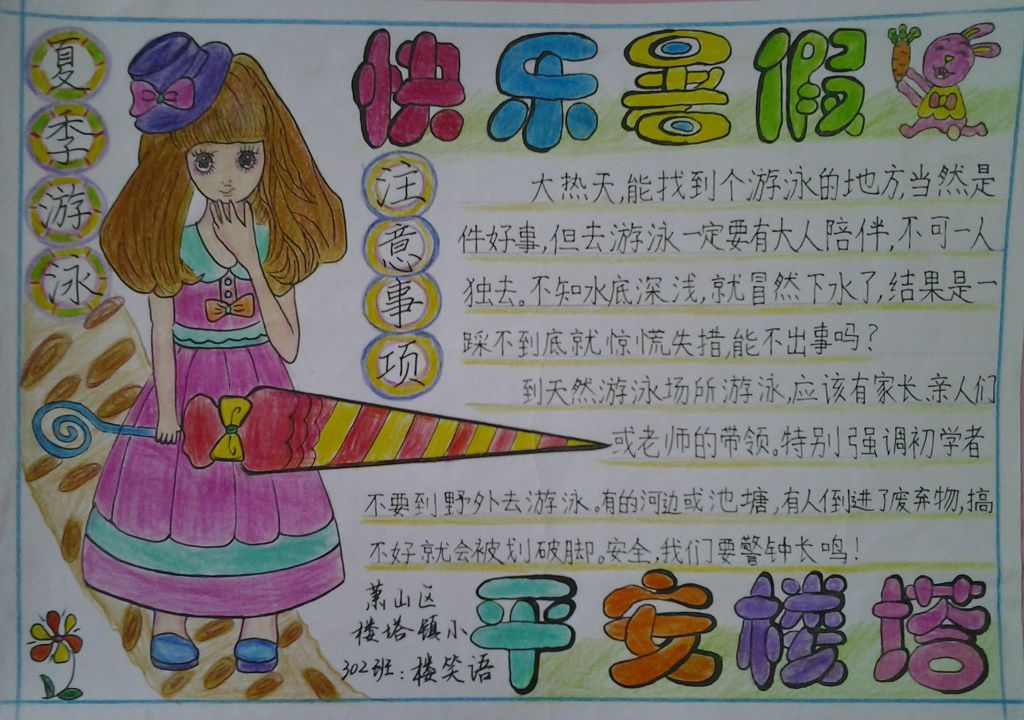 快乐暑假
夏季游泳
注意事项
大热天,能找到个游泳的地方,当然是
件好事,但去游泳一定要有大人陪伴,不可一人
独去。不知水底深浅,就冒然下水了,结果是一
踩不到底就惊慌失措,能不出事吗?
到天然游泳场所游泳,应该有家长、亲人们
或老师的带领。特别强调初学者
不要到野外去游泳。有的河边或池塘,有人倒进了废弃物,搞
不好就会被划破脚。安全,我们要警钟长鸣!
萧山区
楼塔镇小
302班:楼笑语
平安楼塔